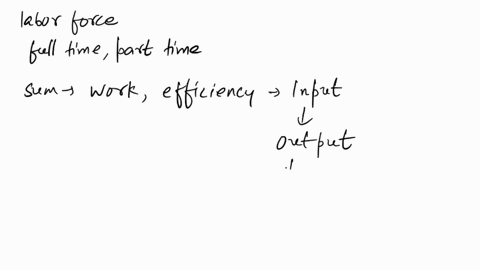 labor force
full time, part time
sum → work, efficiency → Input
↓
output